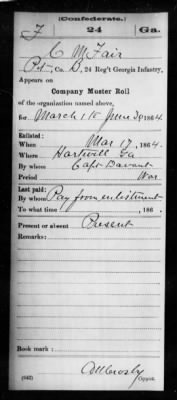 (Confederate.)
F 24 Ga.
C McFair
Pvt, Co. B, 24 Reg't Georgia Infantry,
Appears on
Company Muster Roll
of the organization named above,
for March 1 to June 30, 1864.
Enlisted:
When Mar 17, 1864.
Where Hartwell Ga
By whom Capt Davant
Period War
Last paid:
By whom Pay from enlistment
To what time , 186 .
Present or absent Present
Remarks:
Book mark:
(642) Copyist.